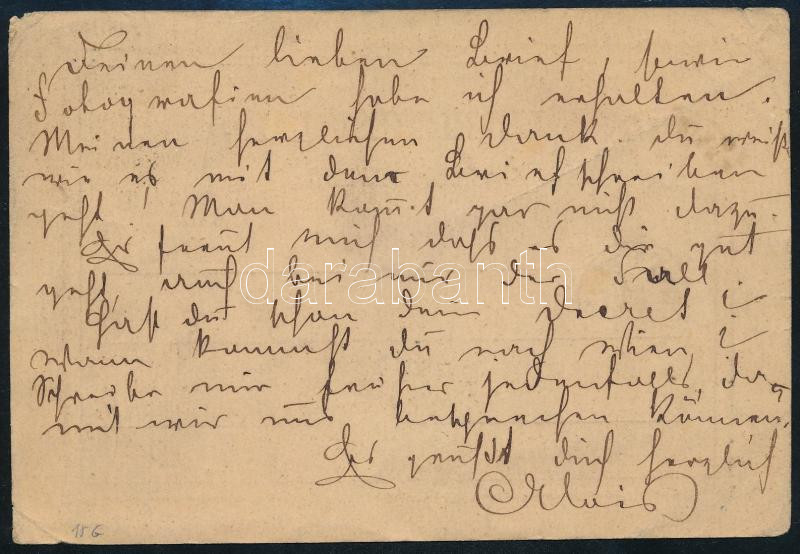 Deinen lieben Brief, sowie
Fotografien habe ich erhalten.
Meinen herzlichen Dank. Du weißt
wie es mit dem Briefschreiben
geht. Man kommt gar nicht dazu.
Es freut mich dass es dir gut
geht, auch bei mir der Fall.
Hast du schon dein Decret?
Wann kommst du nach Wien?
Schreibe mir früher jedenfalls, da-
mit wir uns besprechen können.
Es grüßt dich herzlich
Alois
15 G
darabanth